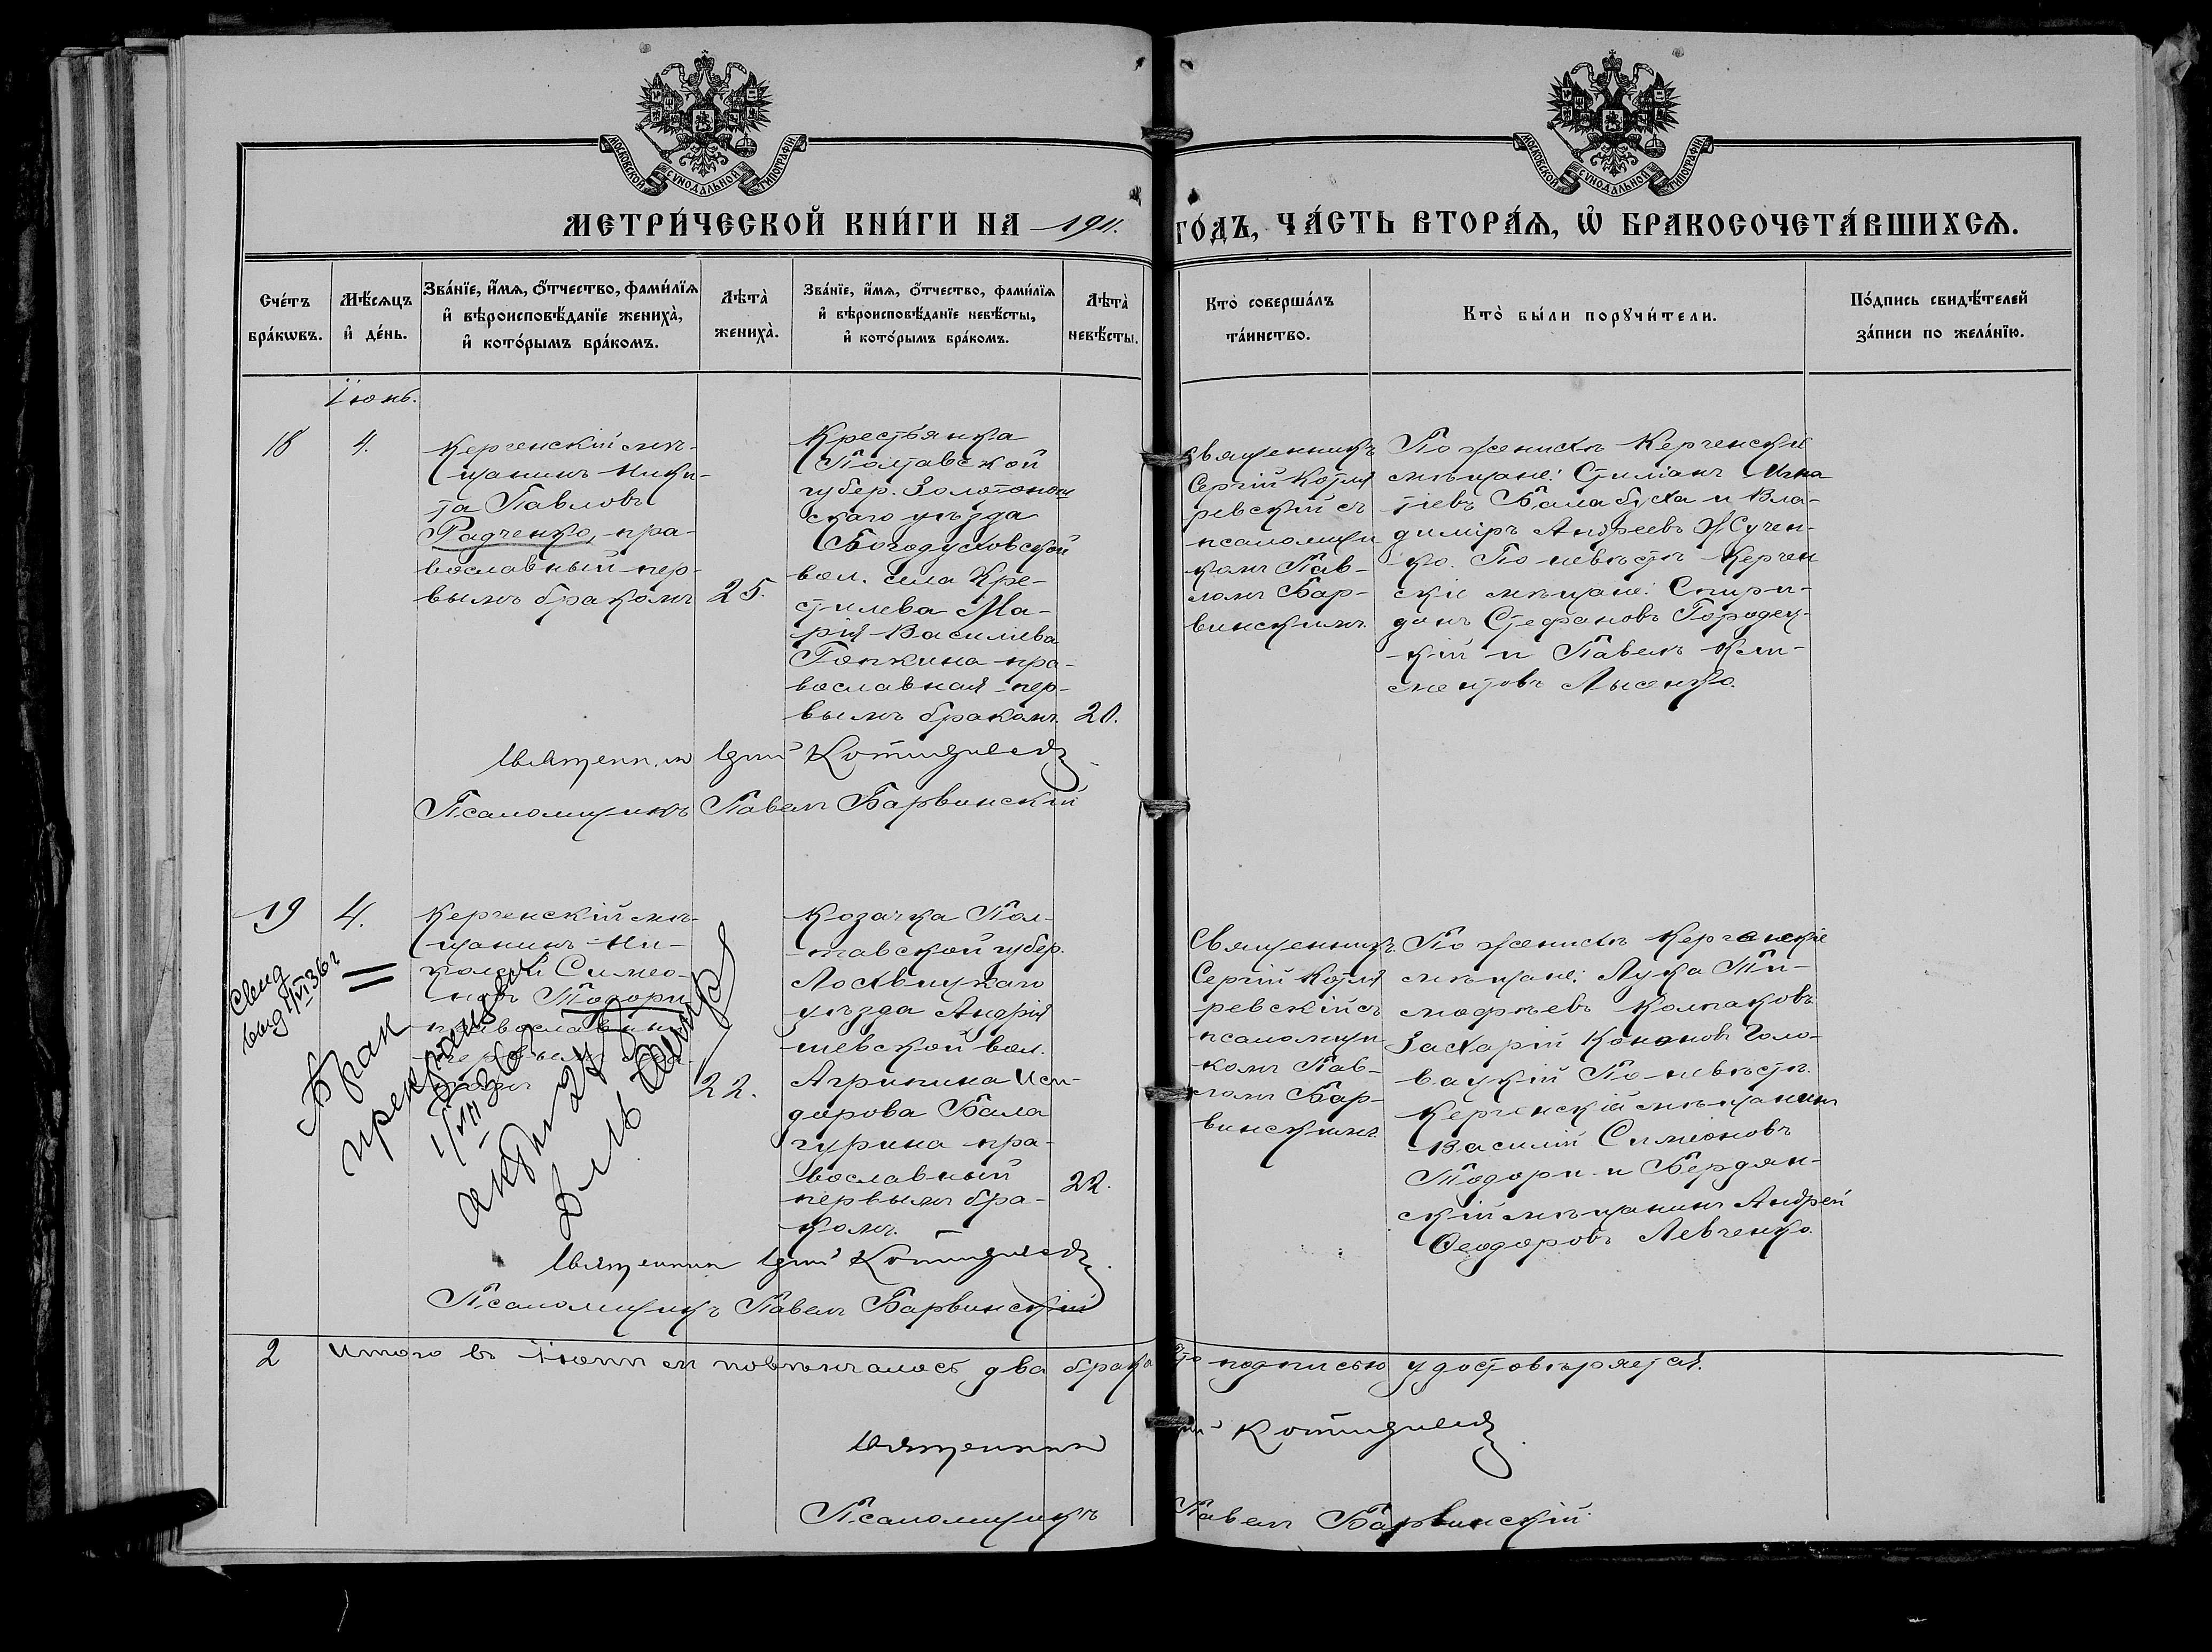 МОСКОВСКОЙ СѴНОДАЛЬНОЙ ТИПОГРАФІИ
МОСКОВСКОЙ СѴНОДАЛЬНОЙ ТИПОГРАФІИ
МЕТРИ́ЧЕСКОЙ КНИ́ГИ НА 1911. ГО́ДЪ, ЧА́СТЬ ВТОРА́Ѧ, Ѡ҆ БРАКОСОЧЕТА́ВШИХСѦ.
Сче́тъ
бра́кѡвъ.
Мѣ́сѧцъ
и҆ де́нь.
Зва́нїе, и҆́мѧ, ѻ҆́тчество, фами́лїѧ
и҆ вѣроисповѣ́данїе жениха̀,
и҆ кото́рымъ бра́комъ.
Лѣта̀
жениха̀.
Зва́нїе, и҆́мѧ, ѻ҆́тчество, фами́лїѧ
и҆ вѣроисповѣ́данїе невѣ́сты,
и҆ кото́рымъ бра́комъ.
Лѣта̀
невѣ́сты.
Кто̀ соверша́лъ
та́инство.
Кто̀ бы́ли порꙋчи́тели.
По́дпись свидѣ́телей
за́писи по жела́нїю.
Іюнь.
18
4.
Керченскій мѣ-
щанинъ Ники-
та Павловъ
Радченко, пра-
вославный пер-
вымъ бракомъ
25.
Крестьянка
Полтавской
губер. Золотонош
скаго уѣзда
Богодуховской
вол. села Кре-
стилева Ма-
рія Василіева
Гопкина пра-
вославная пер-
вымъ бракомъ.
20.
Священникъ
Сергій Котля
ревскій съ
псаломщи
комъ Пав-
ломъ Бар-
винскимъ.
По женихѣ Керченскіе
мѣщане: Стиліанъ Игна
тіевъ Балабуха и Вла-
диміръ Андреевъ Жучен-
ко. По невѣстѣ Керчен
скіе мѣщане: Спири-
донъ Стефановъ Городец-
кій и Павелъ Кли-
ментовъ Лысенко.
Священникъ Сергій Котляревскій
Псаломщикъ Павелъ Барвинскій
19
4.
Керченскій мѣ-
щанинъ Ни-
колай Симео-
новъ Тодори
православный
первымъ бра-
комъ
22.
Козачка Пол-
тавской губер.
Лохвицкаго
уѣзда Андрія
шевской вол.
Агрипина Иси-
дорова Бала
гурина пра-
вославный
первымъ бра-
комъ.
22.
Священникъ
Сергій Котля
ревскій съ
псаломщи
комъ Пав-
ломъ Бар-
винскимъ.
По женихѣ Керченскіе
мѣщане: Лука Ти-
мофѣевъ Колпаковъ
Захарій Кононовъ Голо-
вацкій По невѣстѣ.
Керченскій мѣщанинъ
Василій Симеоновъ
Тодори и Бердян-
скій мѣщанинъ Андрей
Ѳеодоровъ Левченко.
Свид
выд 1/VI 36 г
Брак
прекращен
1/VII 36 г
акт №
Священникъ Сергій Котляревскій
Псаломщикъ Павелъ Барвинскій
2 Итого въ Іюнѣ м повѣнчалось два брака что подписью удостовѣряется.
Священникъ Сергій Котляревскій
Псаломщикъ Павелъ Барвинскій.